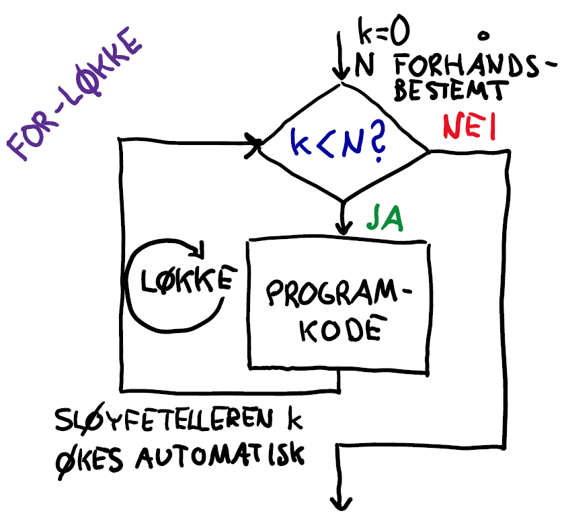 FOR-LØKKE
k=0
N FORHÅNDS-
BESTEMT
k<N?
NEI
JA
LØKKE
PROGRAM-
KODE
SLØYFETELLEREN k
ØKES AUTOMATISK